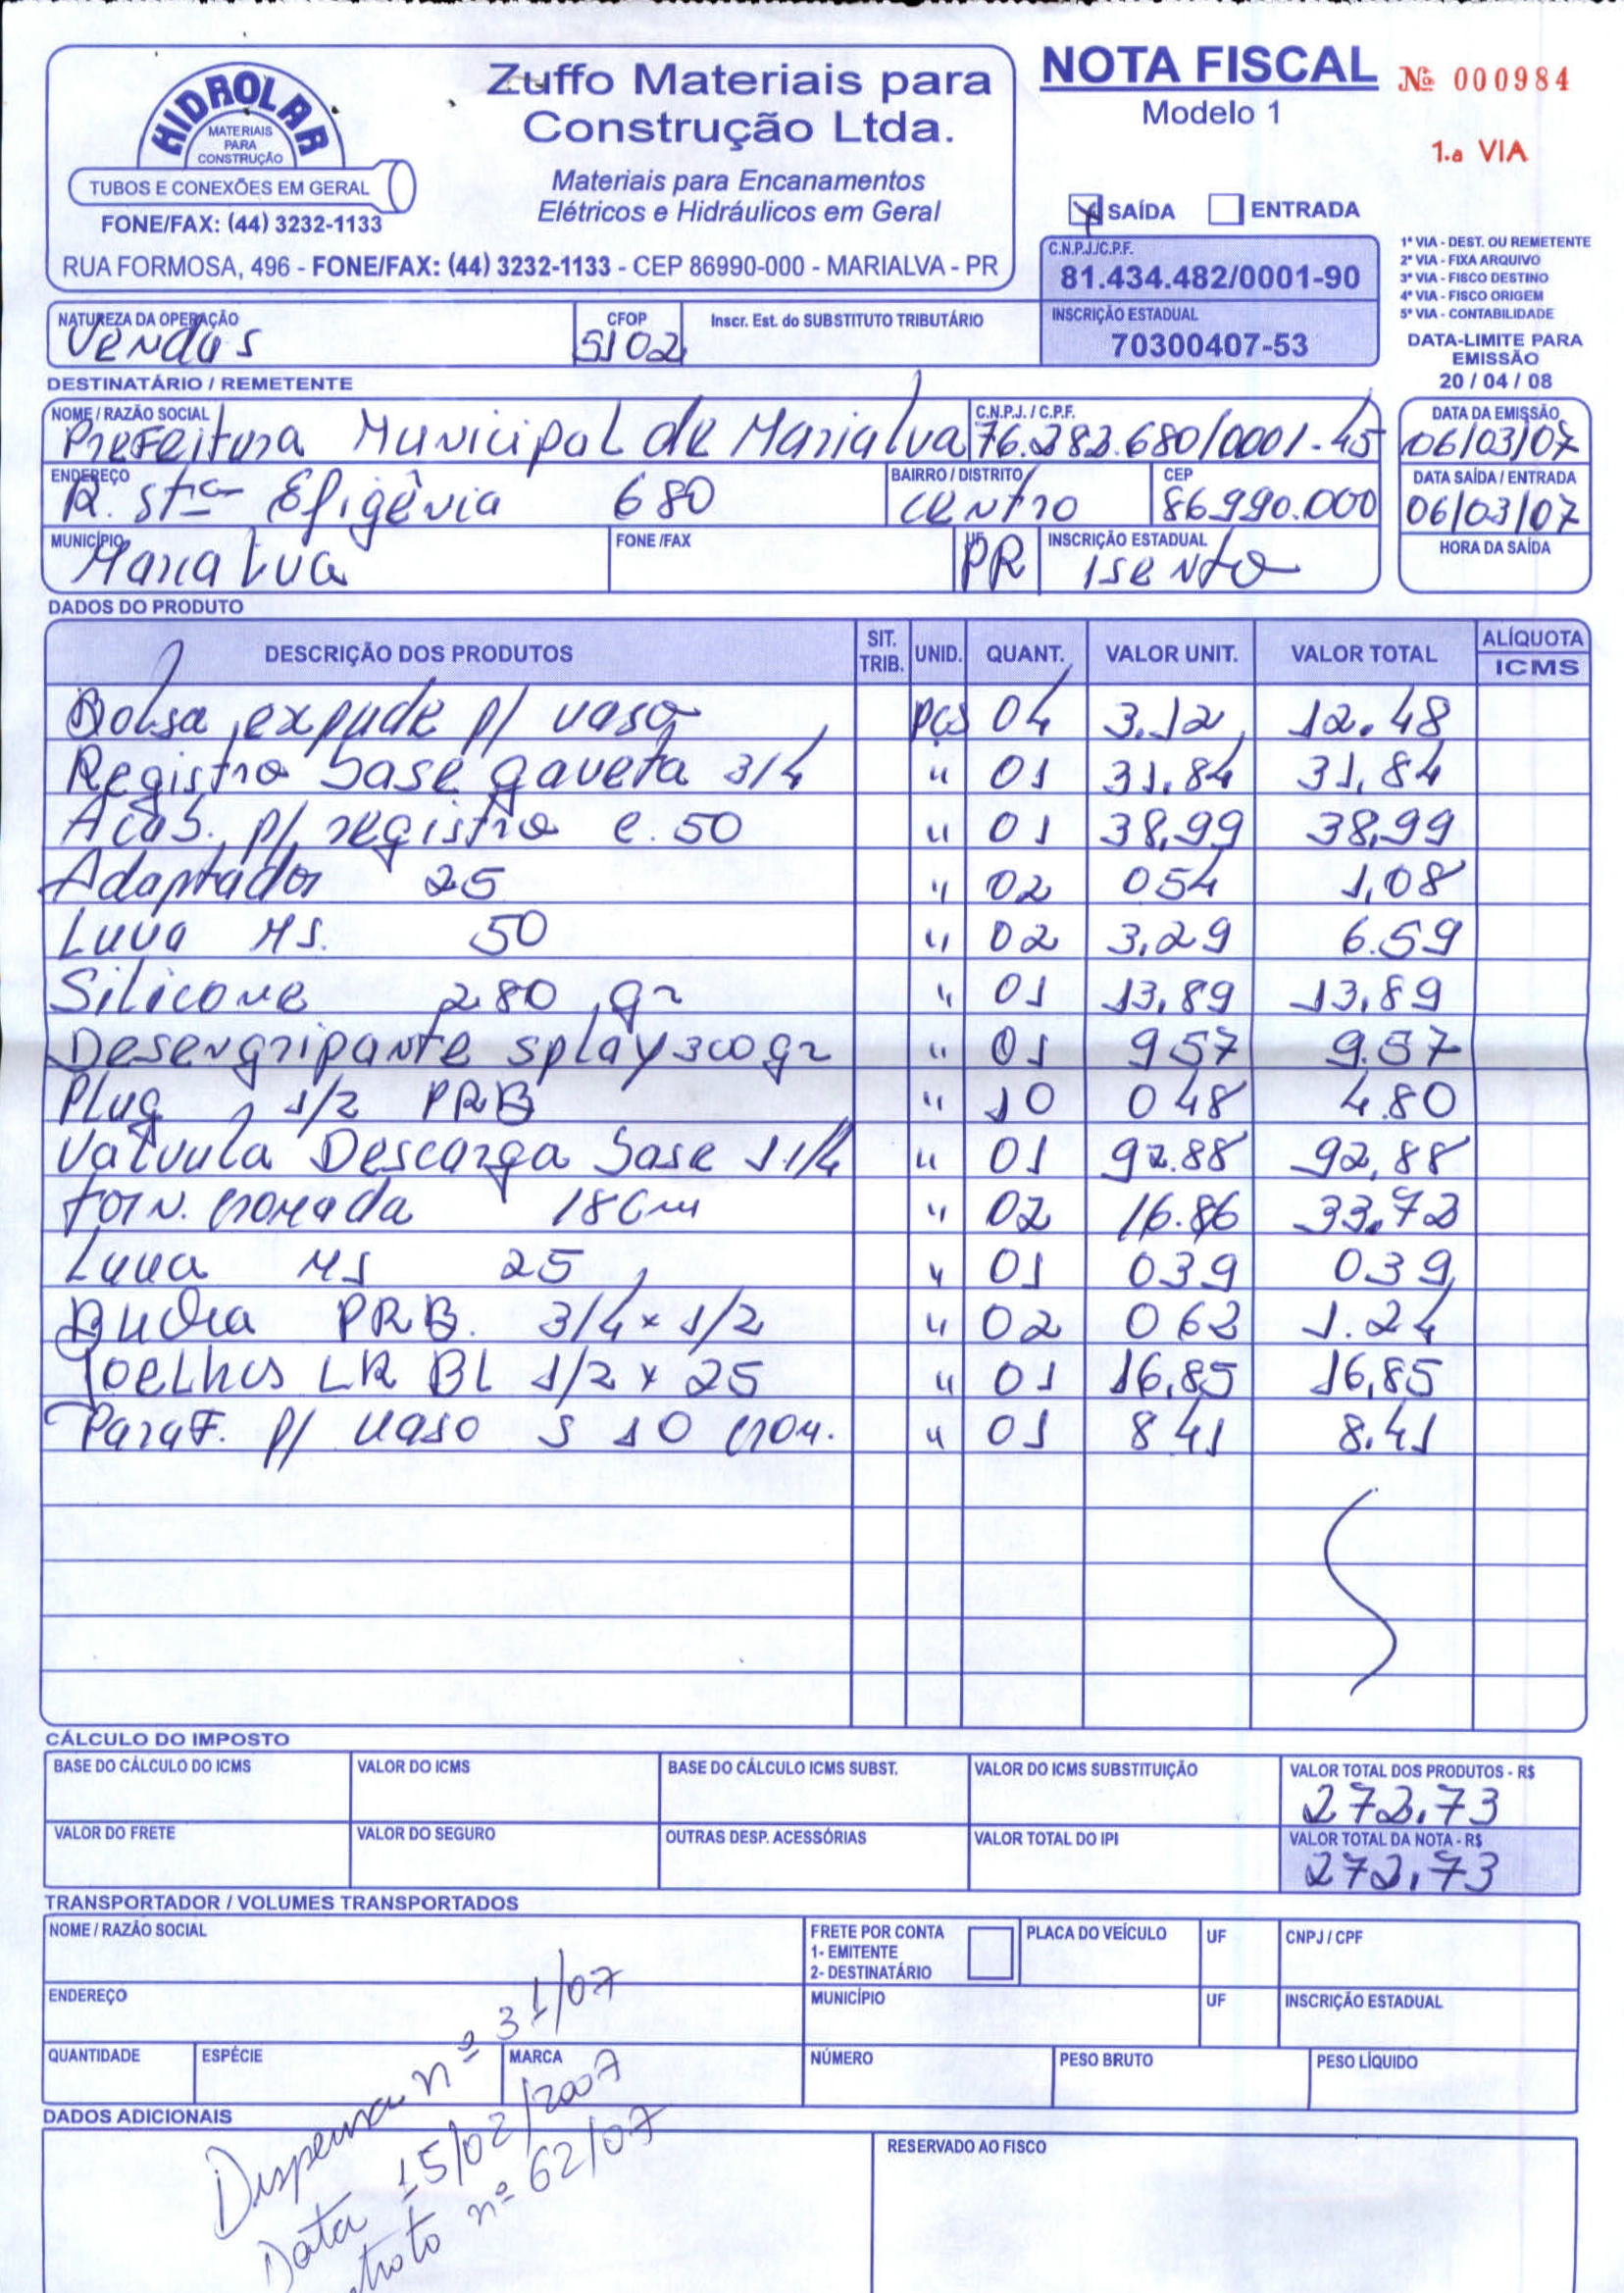 HIDROLAR
MATERIAIS
PARA
CONSTRUÇÃO
TUBOS E CONEXÕES EM GERAL
FONE/FAX: (44) 3232-1133
Zuffo Materiais para
Construção Ltda.
Materiais para Encanamentos
Elétricos e Hidráulicos em Geral
RUA FORMOSA, 496 - FONE/FAX: (44) 3232-1133 - CEP 86990-000 - MARIALVA - PR
NOTA FISCAL
Modelo 1
Nº 000984
1.a VIA
SAÍDA ENTRADA
C.N.P.J./C.P.F.
81.434.482/0001-90
INSCRIÇÃO ESTADUAL
70300407-53
1ª VIA - DEST. OU REMETENTE
2ª VIA - FIXA ARQUIVO
3ª VIA - FISCO DESTINO
4ª VIA - FISCO ORIGEM
5ª VIA - CONTABILIDADE
DATA-LIMITE PARA
EMISSÃO
20 / 04 / 08
NATUREZA DA OPERAÇÃO CFOP Inscr. Est. do SUBSTITUTO TRIBUTÁRIO
Vendas 5102
DESTINATÁRIO / REMETENTE
NOME / RAZÃO SOCIAL C.N.P.J. / C.P.F. DATA DA EMISSÃO
Prefeitura Municipal de Marialva 76.282.680/0001-45 06/03/07
ENDEREÇO BAIRRO / DISTRITO CEP DATA SAÍDA / ENTRADA
R. Stª Efigênia 680 centro 86990.000 06/03/07
MUNICÍPIO FONE /FAX UF INSCRIÇÃO ESTADUAL HORA DA SAÍDA
Marialva PR isento
DADOS DO PRODUTO
DESCRIÇÃO DOS PRODUTOS SIT. TRIB. UNID. QUANT. VALOR UNIT. VALOR TOTAL ALÍQUOTA ICMS
Bolsa expude p/ vaso pçs 04 3.12 12.48
Registro base gaveta 3/4 " 01 31,84 31,84
Acab. p/ registro c.50 " 01 38,99 38,99
Adaptador 25 " 02 054 1,08
Luva MS. 50 " 02 3,29 6.59
Silicone 280 gr " 01 13,89 13,89
Desengripante splay 300gr " 01 957 9.57
Plug 1/2 PRB " 10 048 4.80
Valvula Descarga base 1 1/4 " 01 92.88 92,88
torn. cromada 18cm " 02 16.86 33,72
Luva MS 25 " 01 039 039
Bucha PRB. 3/4 x 1/2 " 02 062 1.24
Joelhos LR BL 1/2 x 25 " 01 16,85 16,85
Paraf. p/ vaso S 10 crom. " 01 8 41 8.41
CÁLCULO DO IMPOSTO
BASE DO CÁLCULO DO ICMS VALOR DO ICMS BASE DO CÁLCULO ICMS SUBST. VALOR DO ICMS SUBSTITUIÇÃO VALOR TOTAL DOS PRODUTOS - R$
272,73
VALOR DO FRETE VALOR DO SEGURO OUTRAS DESP. ACESSÓRIAS VALOR TOTAL DO IPI VALOR TOTAL DA NOTA - R$
272,73
TRANSPORTADOR / VOLUMES TRANSPORTADOS
NOME / RAZÃO SOCIAL FRETE POR CONTA PLACA DO VEÍCULO UF CNPJ / CPF
1- EMITENTE
2- DESTINATÁRIO
ENDEREÇO MUNICÍPIO UF INSCRIÇÃO ESTADUAL
QUANTIDADE ESPÉCIE MARCA NÚMERO PESO BRUTO PESO LÍQUIDO
DADOS ADICIONAIS
RESERVADO AO FISCO
Dispensa nº 31/07
Data 15/02/2007
nº 62/07